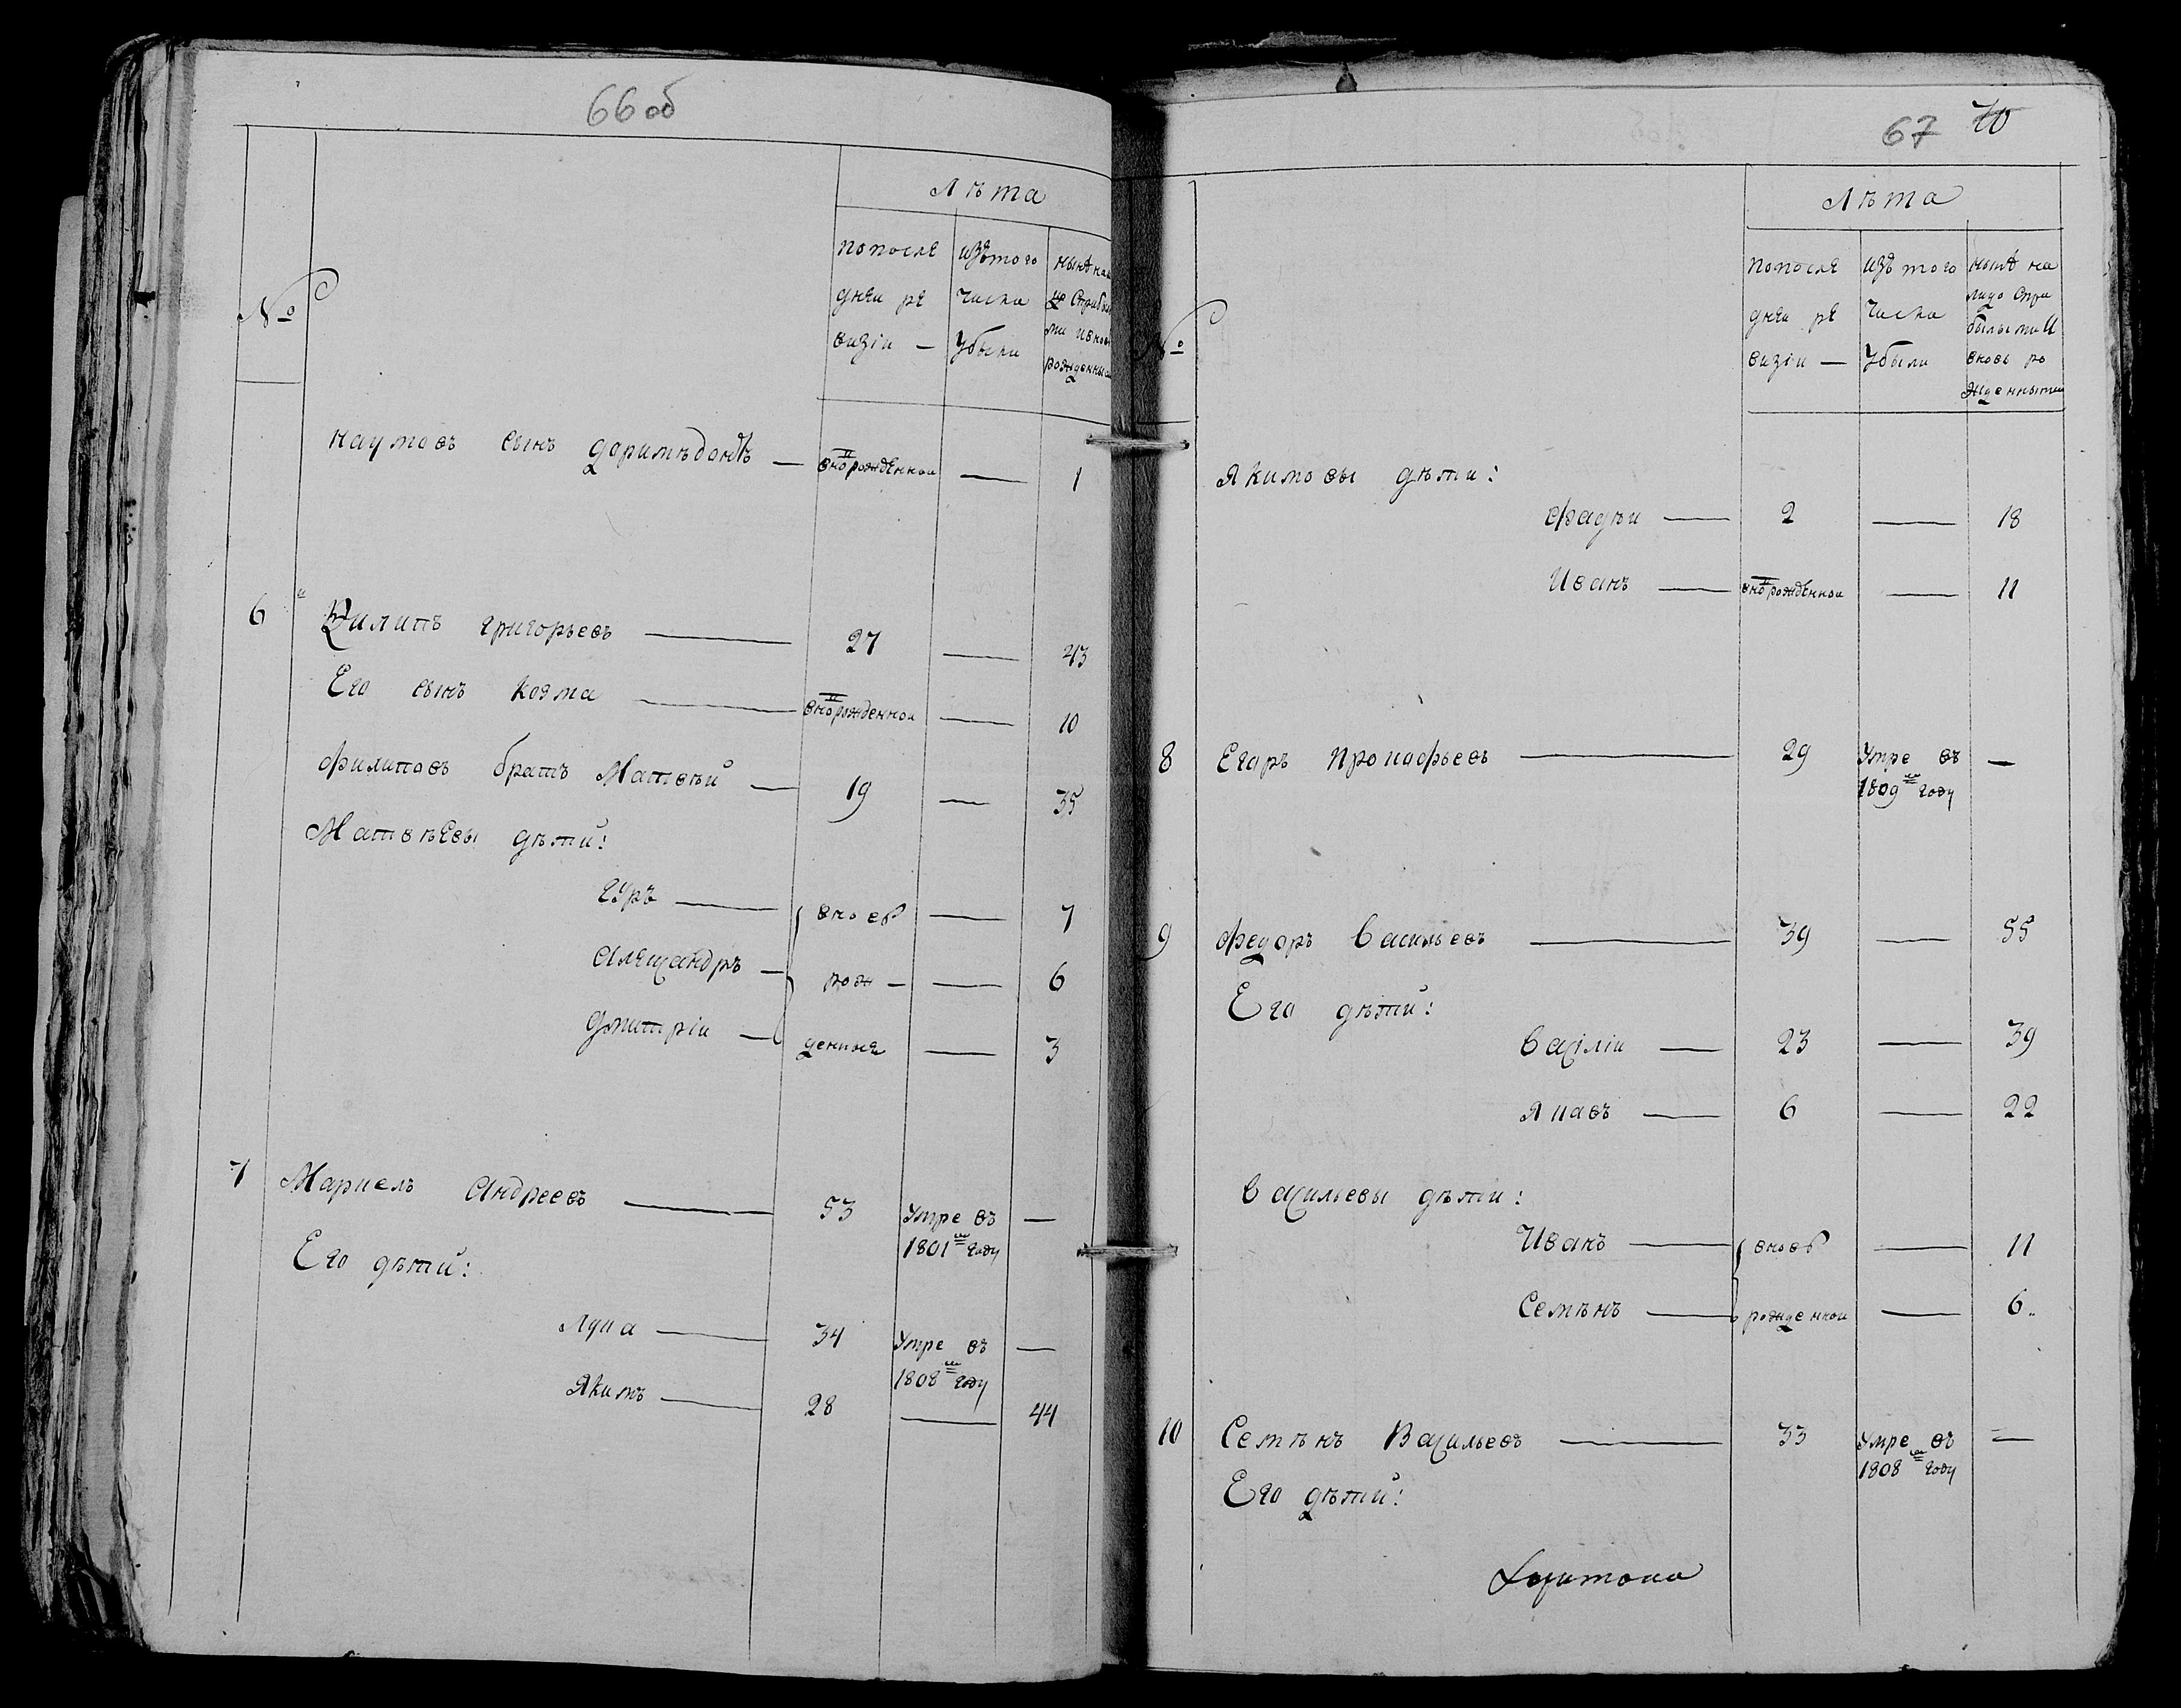 66 об
№
Лѣта
попослѣ
дней ре
визіи —
изътого
числа
убыли
нынѣ на
родженны
наумовъ сынъ доримѣдонтъ — вно рожденной — 1
6 Филипъ григорьевъ — 27 — 43
Его сынъ козма — вно рожденной — 10
филиповъ братъ Матвѣй — 19 — 35
Матвѣевы дѣти:
гуръ — вновь — 7
Александръ — рож — — 6
дмитріи — денные — 3
7 Маркелъ Андреевъ — 53 Умре въ —
1801м году
Его дѣти:
Лука — 34 Умре въ —
1808м году
Якимъ — 28 — 44
67 70
№
Лѣта
попосле
дней ре
визіи —
изъ того
числа
убыли
нынѣ на
лицо спри
былыми И
вновь ро
жденными
Якимовы дѣти:
фадѣи — 2 — 18
Иванъ — вно рожденнои — 11
8 Егаръ прокофьевъ — 29 Умре въ —
1809м году
9 федоръ Васильевъ — 39 — 55
Его дѣти:
Василіи — 23 — 39
Яковъ — 6 — 22
Васильевы дѣти:
Иванъ — вновь — 11
Семѣнъ — рожденнои — 6
10 Семѣнъ Васильевъ — 33 Умре въ —
1808м году
Его дѣти: